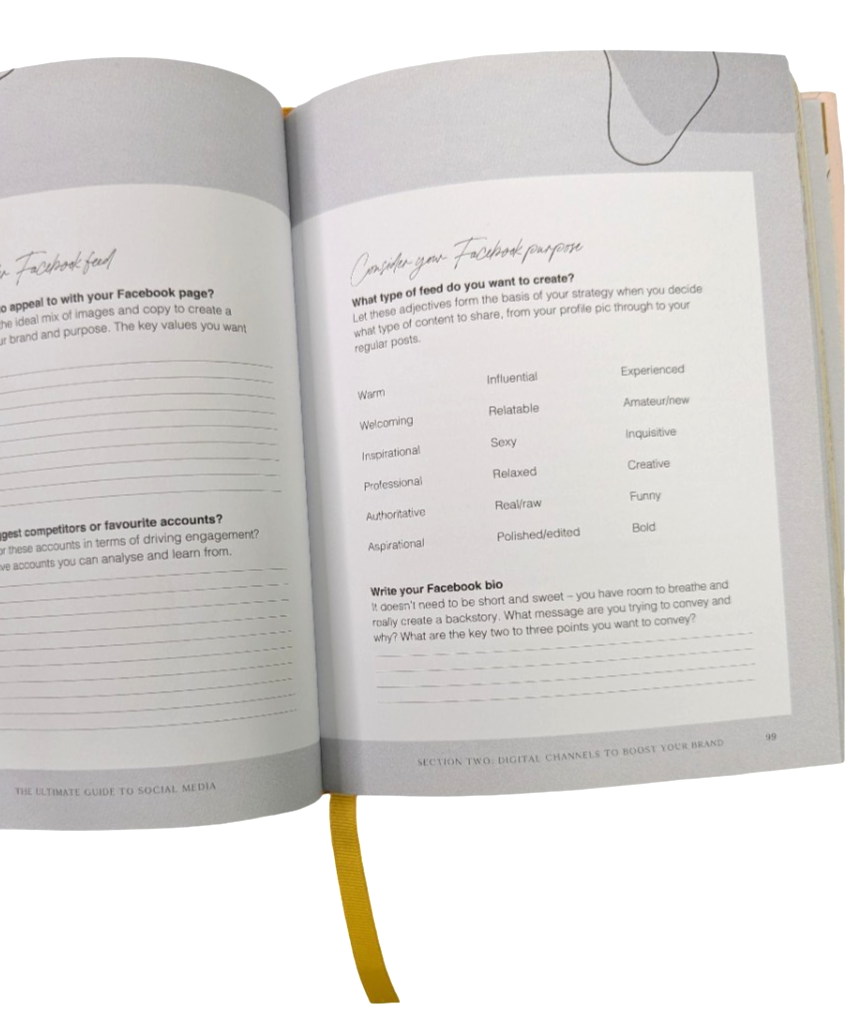 Facebook feed
o appeal to with your Facebook page?
the ideal mix of images and copy to create a
ur brand and purpose. The key values you want
ggest competitors or favourite accounts?
or these accounts in terms of driving engagement?
ve accounts you can analyse and learn from.
THE ULTIMATE GUIDE TO SOCIAL MEDIA
Consider your Facebook purpose
What type of feed do you want to create?
Let these adjectives form the basis of your strategy when you decide
what type of content to share, from your profile pic through to your
regular posts.
Warm
Welcoming
Inspirational
Professional
Authoritative
Aspirational
Influential
Relatable
Sexy
Relaxed
Real/raw
Polished/edited
Experienced
Amateur/new
Inquisitive
Creative
Funny
Bold
Write your Facebook bio
It doesn't need to be short and sweet – you have room to breathe and
really create a backstory. What message are you trying to convey and
why? What are the key two to three points you want to convey?
SECTION TWO: DIGITAL CHANNELS TO BOOST YOUR BRAND
99